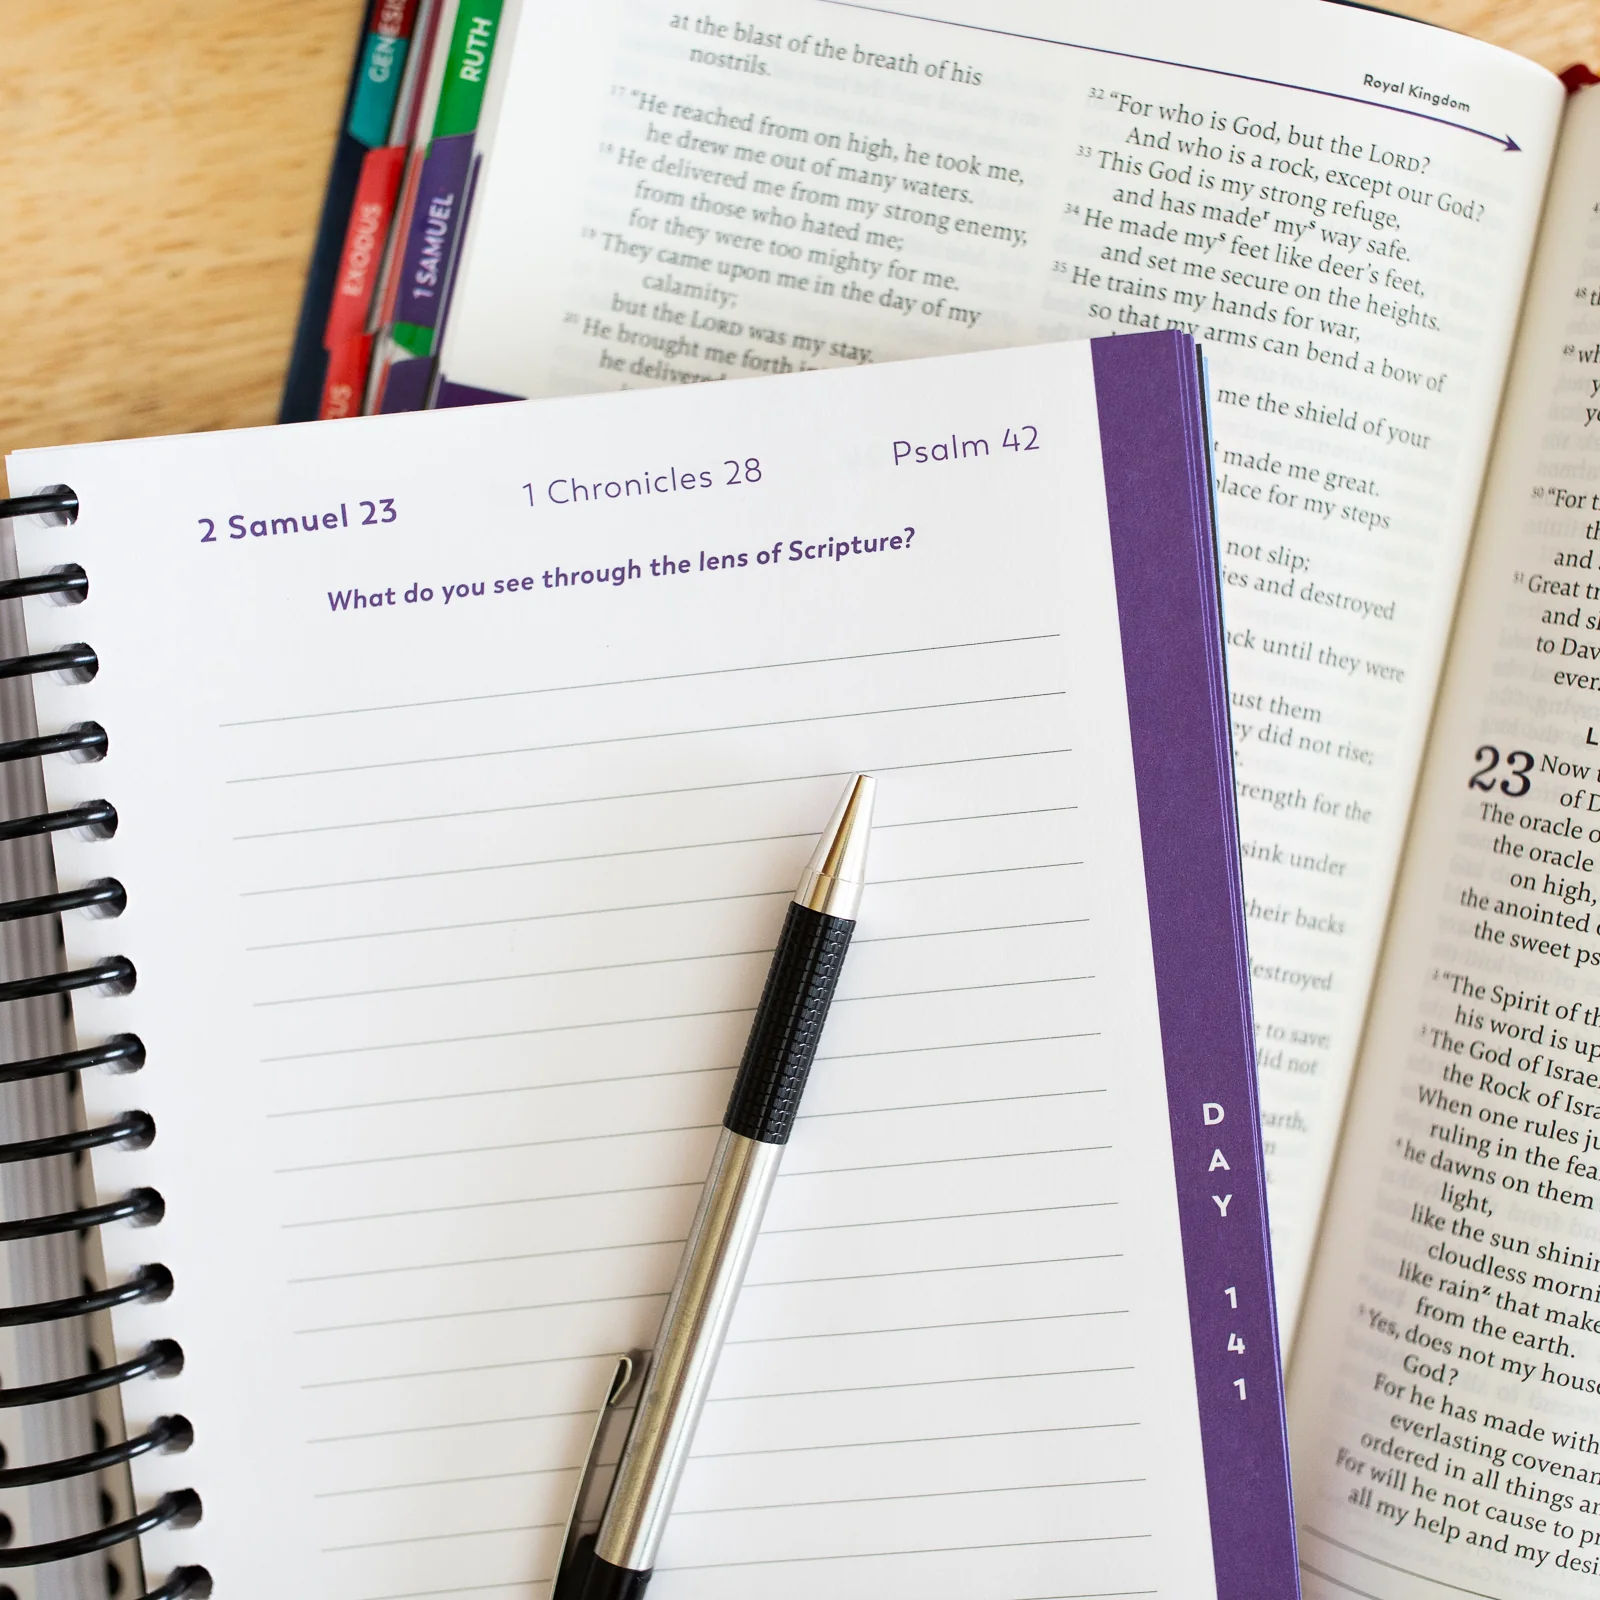 GENESIS
EXODUS
RUTH
1 SAMUEL
at the blast of the breath of his
nostrils.
17 “He reached from on high, he took me,
he drew me out of many waters.
18 He delivered me from my strong enemy,
from those who hated me;
for they were too mighty for me.
19 They came upon me in the day of my
calamity;
but the LORD was my stay.
20 He brought me forth
he delivered
Royal Kingdom
32 “For who is God, but the LORD?
And who is a rock, except our God?
33 This God is my strong refuge,
and has made r my s way safe.
34 He made my s feet like deer’s feet,
and set me secure on the heights.
35 He trains my hands for war,
so that my arms can bend a bow of
me the shield of your
made me great.
place for my steps
not slip;
and destroyed
until they were
them
did not rise;
for the
sink under
their backs
destroyed
to save;
did not
earth,
2 Samuel 23
1 Chronicles 28
Psalm 42
What do you see through the lens of Scripture?
DAY 141
49
50 “For
and
51 Great
and
to
ever.
23 Now
of
The oracle
the oracle
on high,
the anointed
the sweet
2 “The Spirit of
his word is
3 The God of
the Rock of
When one rules
ruling in the
4 he dawns on them
light,
like the sun
cloudless
like rain z that
from the earth.
5 Yes, does not my
God?
For he has made with
everlasting
ordered in all things
For will he not cause to
all my help and my